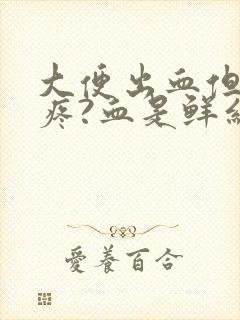 大便出血但
疼?血是鲜
愛養百合